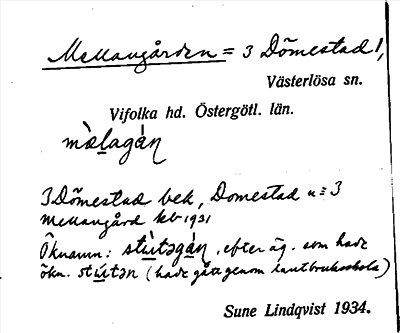 Mellangården = 3 Dömestad 1,
Västerlösa sn.
Vifolka hd. Östergötl. län.
mälagån
3 Dömestad bek, Domestad n:r 3
Mellangård kb 1931
Öknamn: stútəgån, efter äg. som hade
ökn. stútən (hade gått genom lantbruksskola)
Sune Lindqvist 1934.